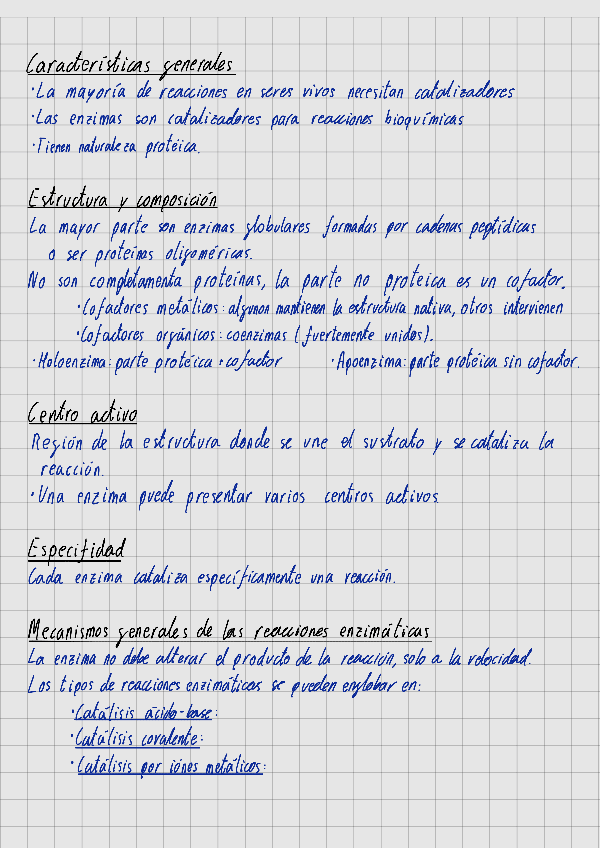 Características generales
·La mayoría de reacciones en seres vivos necesitan catalizadores
·Las enzimas son catalizadores para reacciones bioquímicas
·Tienen naturaleza protéica.
Estructura y composición
La mayor parte son enzimas globulares formadas por cadenas peptídicas
o ser proteínas oligoméricas.
No son completamenta proteínas, la parte no proteica es un cofactor.
·Cofactores metálicos: algunon mantienen la estructura nativa, otros intervienen
·Cofactores orgánicos: coenzimas (fuertemente unidos).
·Holoenzima: parte protéica + cofactor ·Apoenzima: parte protéica sin cofactor.
Centro activo
Región de la estructura donde se une el sustrato y se cataliza la
reacción.
·Una enzima puede presentar varios centros activos
Especifidad
Cada enzima cataliza específicamente una reacción.
Mecanismos generales de las reacciones enzimáticas
La enzima no debe alterar el producto de la reacción, solo a la velocidad.
Los tipos de reacciones enzimáticas se pueden englobar en:
·Catálisis ácido-base:
·Catálisis covalente:
·Catálisis por iónes metálicos: